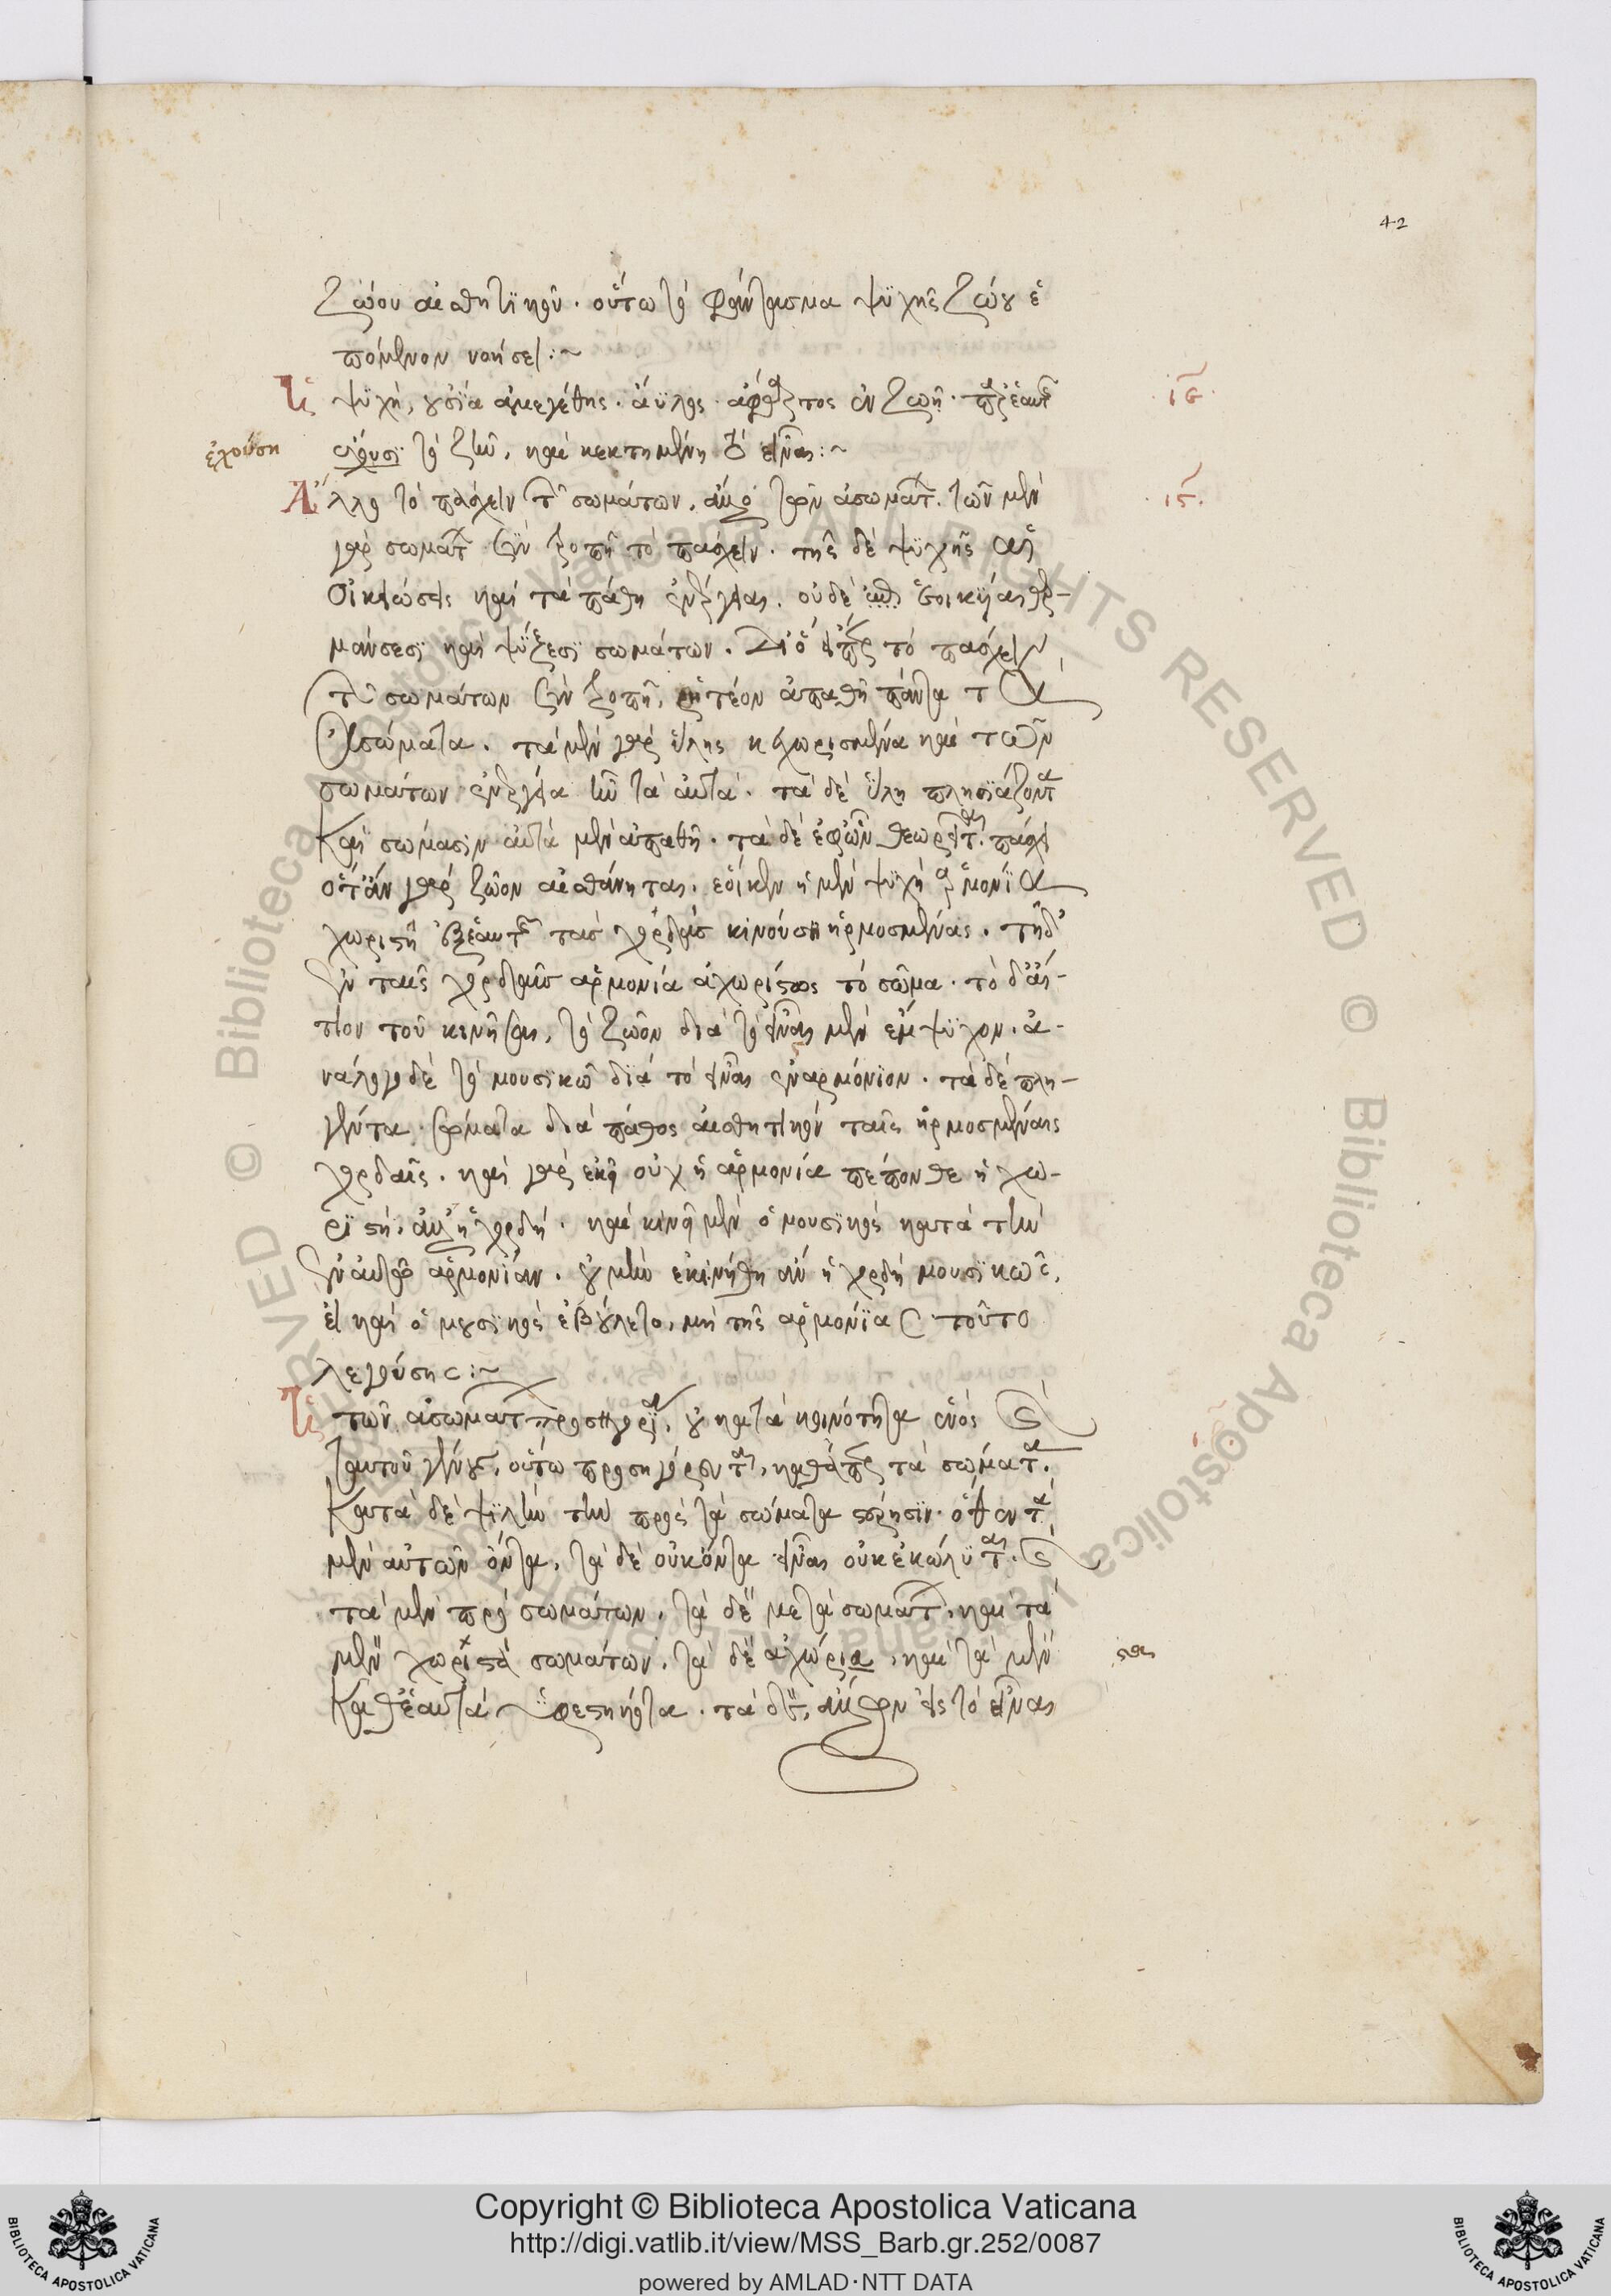 42
ζώου αἰσθητικοῦ. οὕτω τὸ φάντασμα ψυχῆς ζώου ἑ
πόμενον νοήσει :~
ιε.
Ἡ ψυχή, οὐσία ἀμεγέθης. ἄϋλος. ἄφθαρτος ἐν ζωῇ. παρ' ἑαυτῆς
ἐχούσῃ
ἐχούσῃ τὸ ζῆν, καὶ κεκτημένη τὸ εἶναι :~
ιϛ.
Ἄλλο τὸ πάσχειν τῶν σωμάτων. ἄλλο τὸ τῶν ἀσωμάτων. τῶν μὲν
γὰρ σωμάτων σὺν τροπῇ τὸ πάσχειν. τῆς δὲ ψυχῆς αἱ
οἰκειώσεις καὶ τὰ πάθη ἐνέργειαι. οὐδὲ ἐοικυῖαι θερ-
μάνσεσι καὶ ψύξεσι σωμάτων. διὸ εἴπερ τὸ πάσχειν
τῶν σωμάτων σὺν τροπῇ, ῥητέον ἀπαθῆ πάντα τὰ
ἀσώματα. τὰ μὲν γὰρ ὕλης κεχωρισμένα καὶ τῶν
σωμάτων ἐνεργείᾳ ἦν τὰ αὐτά. τὰ δὲ ὕλῃ πλησιάζοντα
καὶ σώμασιν αὐτὰ μὲν ἀπαθῆ. τὰ δὲ ἐφ' ὧν θεωρεῖται πάσχει
ὅταν γὰρ ζῶον αἰσθάνηται, ἔοικεν ἡ μὲν ψυχὴ ἁρμονίᾳ
χωριστῇ ἐξ ἑαυτῆς τὰς χορδὰς κινούσῃ ἡρμοσμένας. τῇ δ'
ἐν ταῖς χορδαῖς ἁρμονίᾳ ἀχωρίστῳ τὸ σῶμα. τὸ δ' αἴ-
τιον τοῦ κινῆσαι, τὸ ζῶον διὰ τὸ εἶναι μὲν ἔμψυχον. ἀ-
νάλογον δὲ τῷ μουσικῷ διὰ τὸ εἶναι ἐναρμόνιον. τὰ δὲ πλη-
γέντα σώματα διὰ πάθος αἰσθητικὸν ταῖς ἡρμοσμέναις
χορδαῖς. καὶ γὰρ ἐκεῖ οὐχ ἡ ἁρμονία πέπονθε ἡ χω-
ριστή, ἀλλ' ἡ χορδή. καὶ κινεῖ μὲν ὁ μουσικὸς κατὰ τὴν
ἐν αὐτῷ ἁρμονίαν. οὐ μὴν ἐκινήθη ἂν ἡ χορδὴ μουσικῶς,
εἰ καὶ ὁ μουσικὸς ἐβούλετο, μὴ τῆς ἁρμονίας τοῦτο
λεγούσης :~
ιζ.
Ἡ τῶν ἀσωμάτων προσηγορία, οὐ κατὰ κοινότητα ἑνὸς καὶ
ταυτοῦ γένους, οὕτω προσηγόρευται, καθάπερ τὰ σώματα.
κατὰ δὲ ψιλὴν τὴν πρὸς τὰ σώματα στέρησιν. ὅθεν τὰ
μὲν αὐτῶν ὄντα, τὰ δὲ οὐκ ὄντα εἶναι οὐ κεκώλυται. καὶ
τὰ μὲν πρὸ σωμάτων, τὰ δὲ μετὰ σωμάτων, καὶ τὰ
μὲν χωριστὰ σωμάτων, τὰ δὲ ἀχώριστα, καὶ τὰ μὲν
καθ' ἑαυτὰ ὑφεστηκότα. τὰ δὲ, ἄλλων εἰς τὸ εἶναι